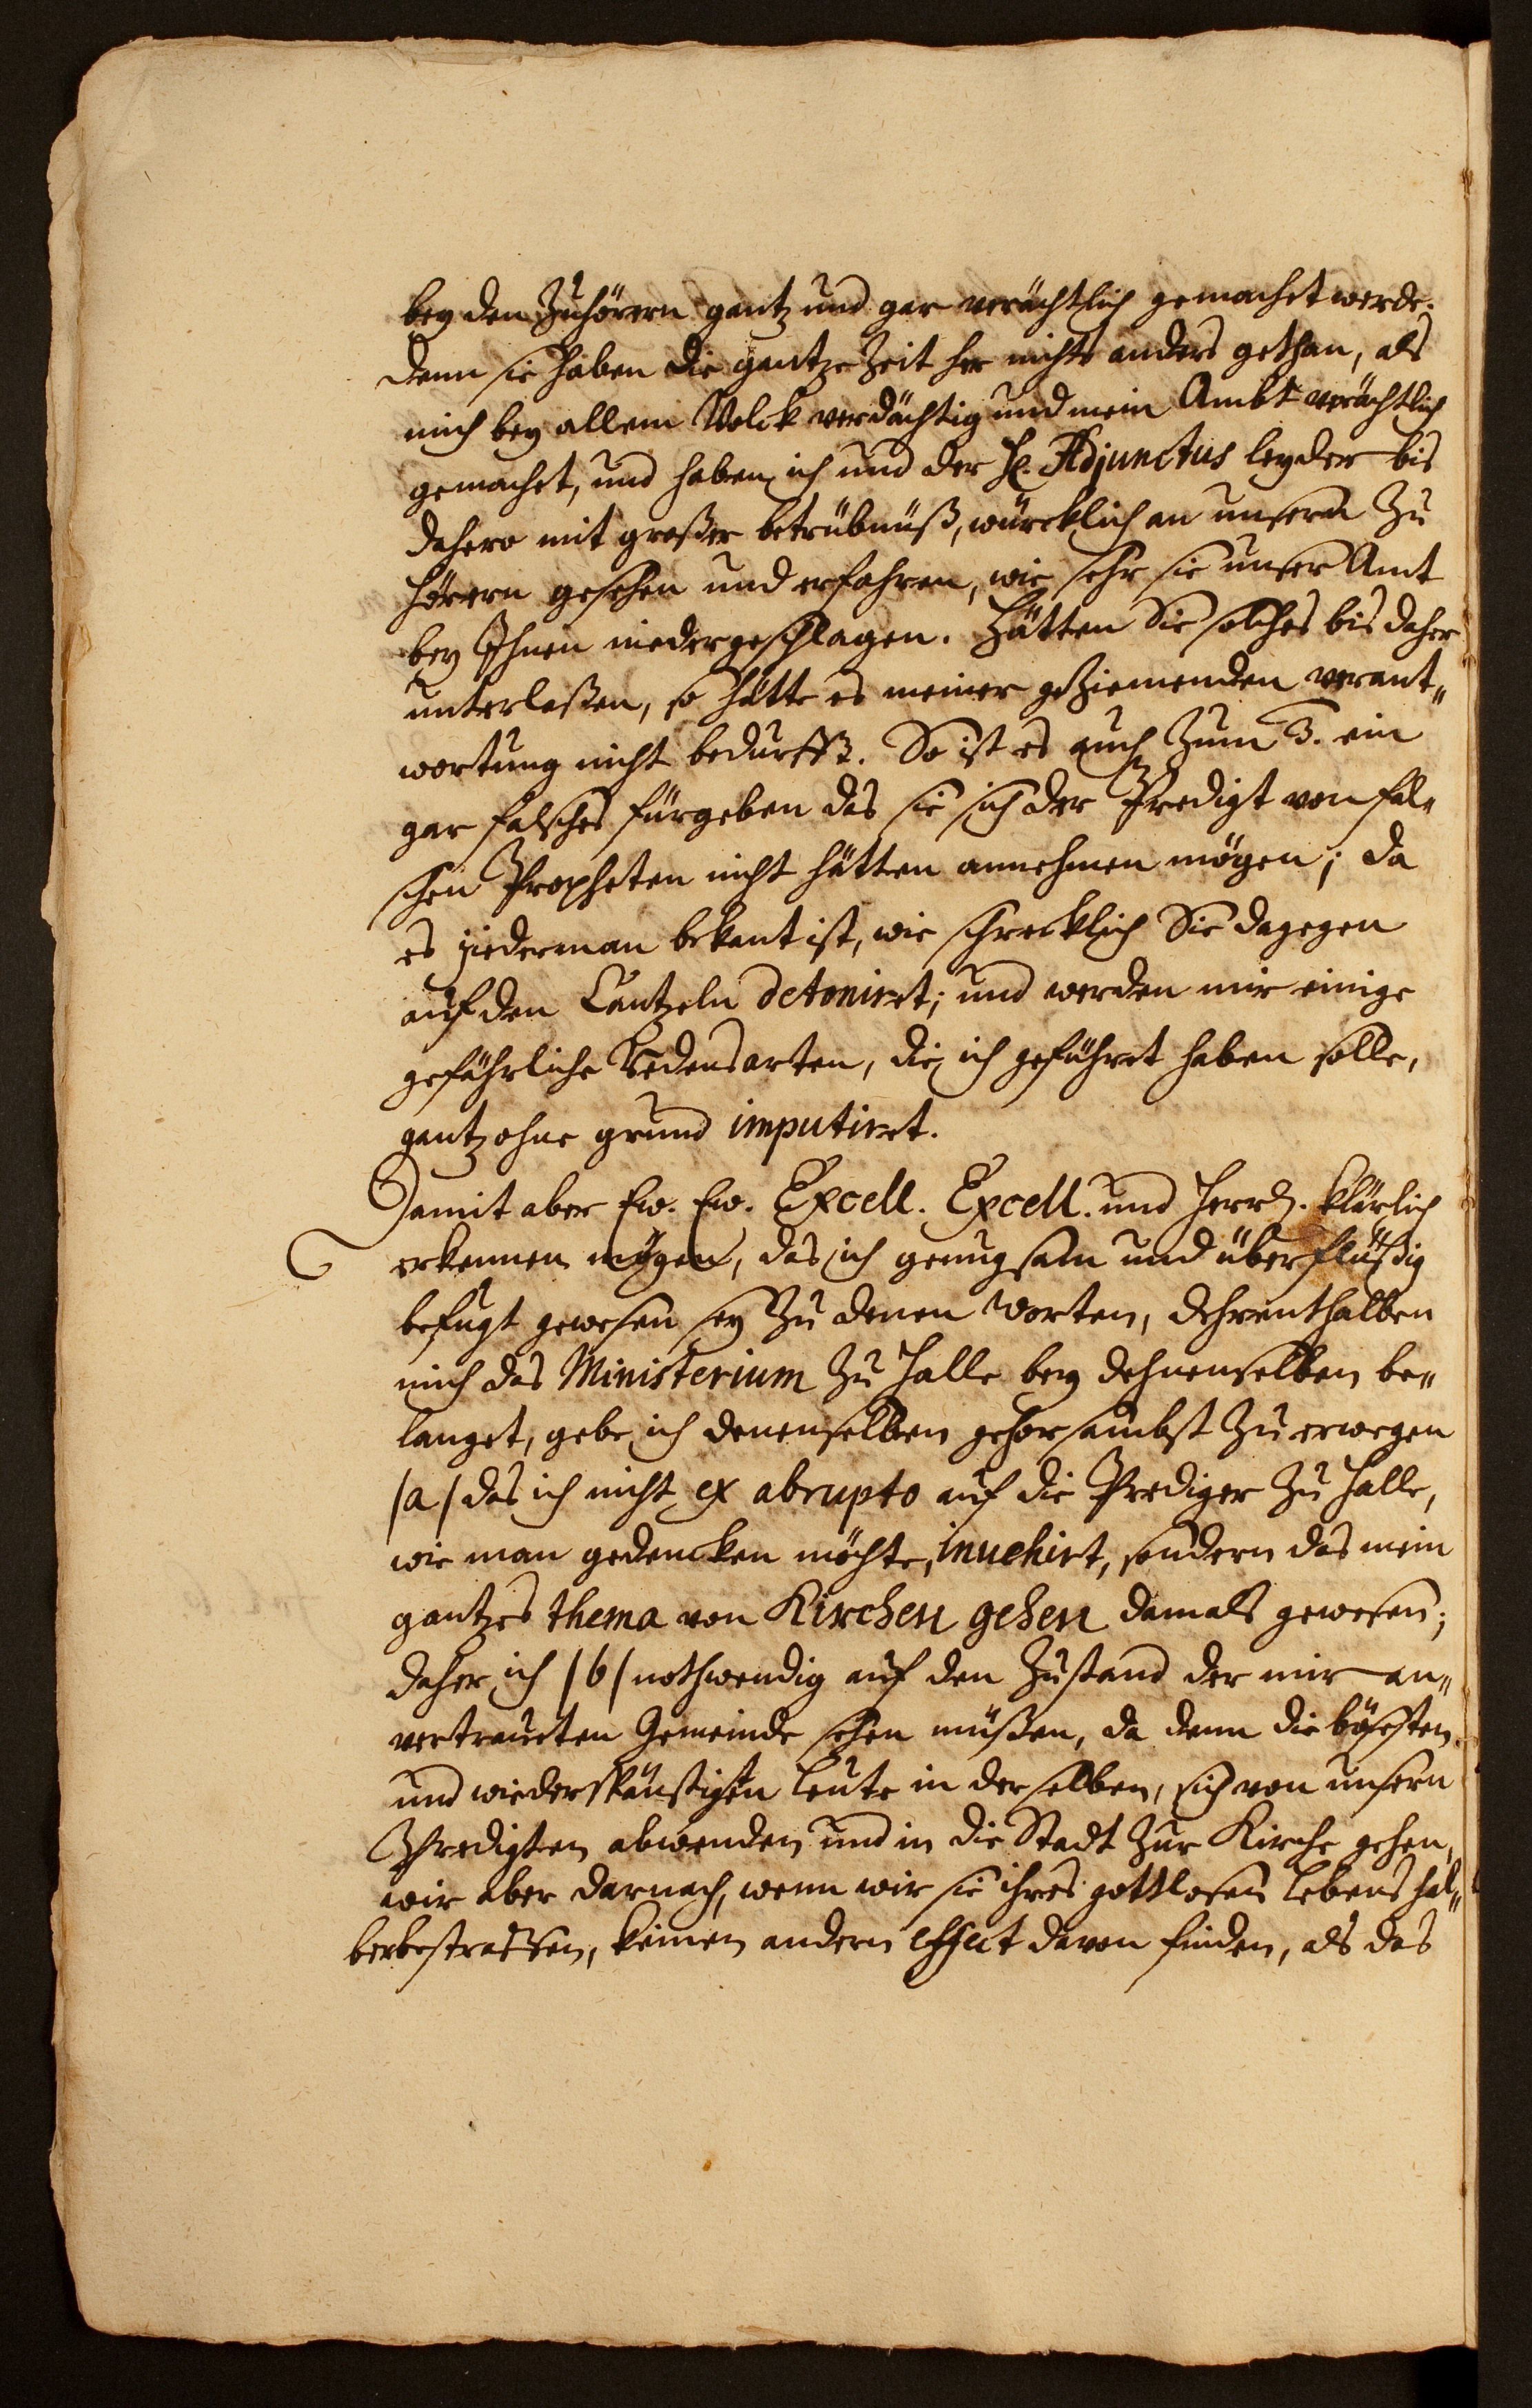 bey den Zuhörern gantz und gar verächtlich gemachet werde.
denn sie haben die gantze Zeit her nichts anders gethan, als
mich bey allem Volck verdächtig und mein Ambt verächtlich
gemachet, und haben ich und der H. Adjunctus leyder bis
dahero mit großer betrübnüß, würcklich an unsern Zu
hörern gesehen und erfahren, wie sehr sie unser Amt
bey Ihnen niedergeschlagen. Hätten Sie solches bis daher
unterlaßen, so hätte es meiner geziemenden verant„
wortung nicht bedurfft. So ist es auch zum 3. ein
gar falsches fürgeben das sie sich der Predigt von fal„
schen Propheten nicht hätten annehmen mögen; da
es jederman bekant ist, wie schrecklich Sie dagegen
auf den Cantzeln detoniret; und werden mir einige
gefährliche Redensarten, die ich geführet haben solle,
gantz ohne grund imputiret.
Damit aber Ew. Ew. Excell. Excell. und Herrl. klärlich
erkennen mögen, das ich genugsam und überflüßig
befugt gewesen sey zu denen worten, dehrenthalben
mich das Ministerium zu Halle bey dehnenselben be„
langet, gebe ich denenselben gehorsambst zu erwegen
/a/ das ich nicht ex abrupto auf die Prediger zu Halle,
wie man gedencken möchte, invehirt, sondern das mein
gantzes thema von Kirchen gehen damals gewesen;
daher ich /b/ nothwendig auf den Zustand der mir an„
vertraueten Gemeinde sehen müßen, da denn die bösesten
und wiederspänstigsten leute in derselben, sich von unsern
Predigten abwenden und in die Stadt zur Kirche gehen,
wir aber darnach, wenn wir sie ihres gottlosen lebens hal„
ber bestraffen, keinen andern effect davon finden, als das